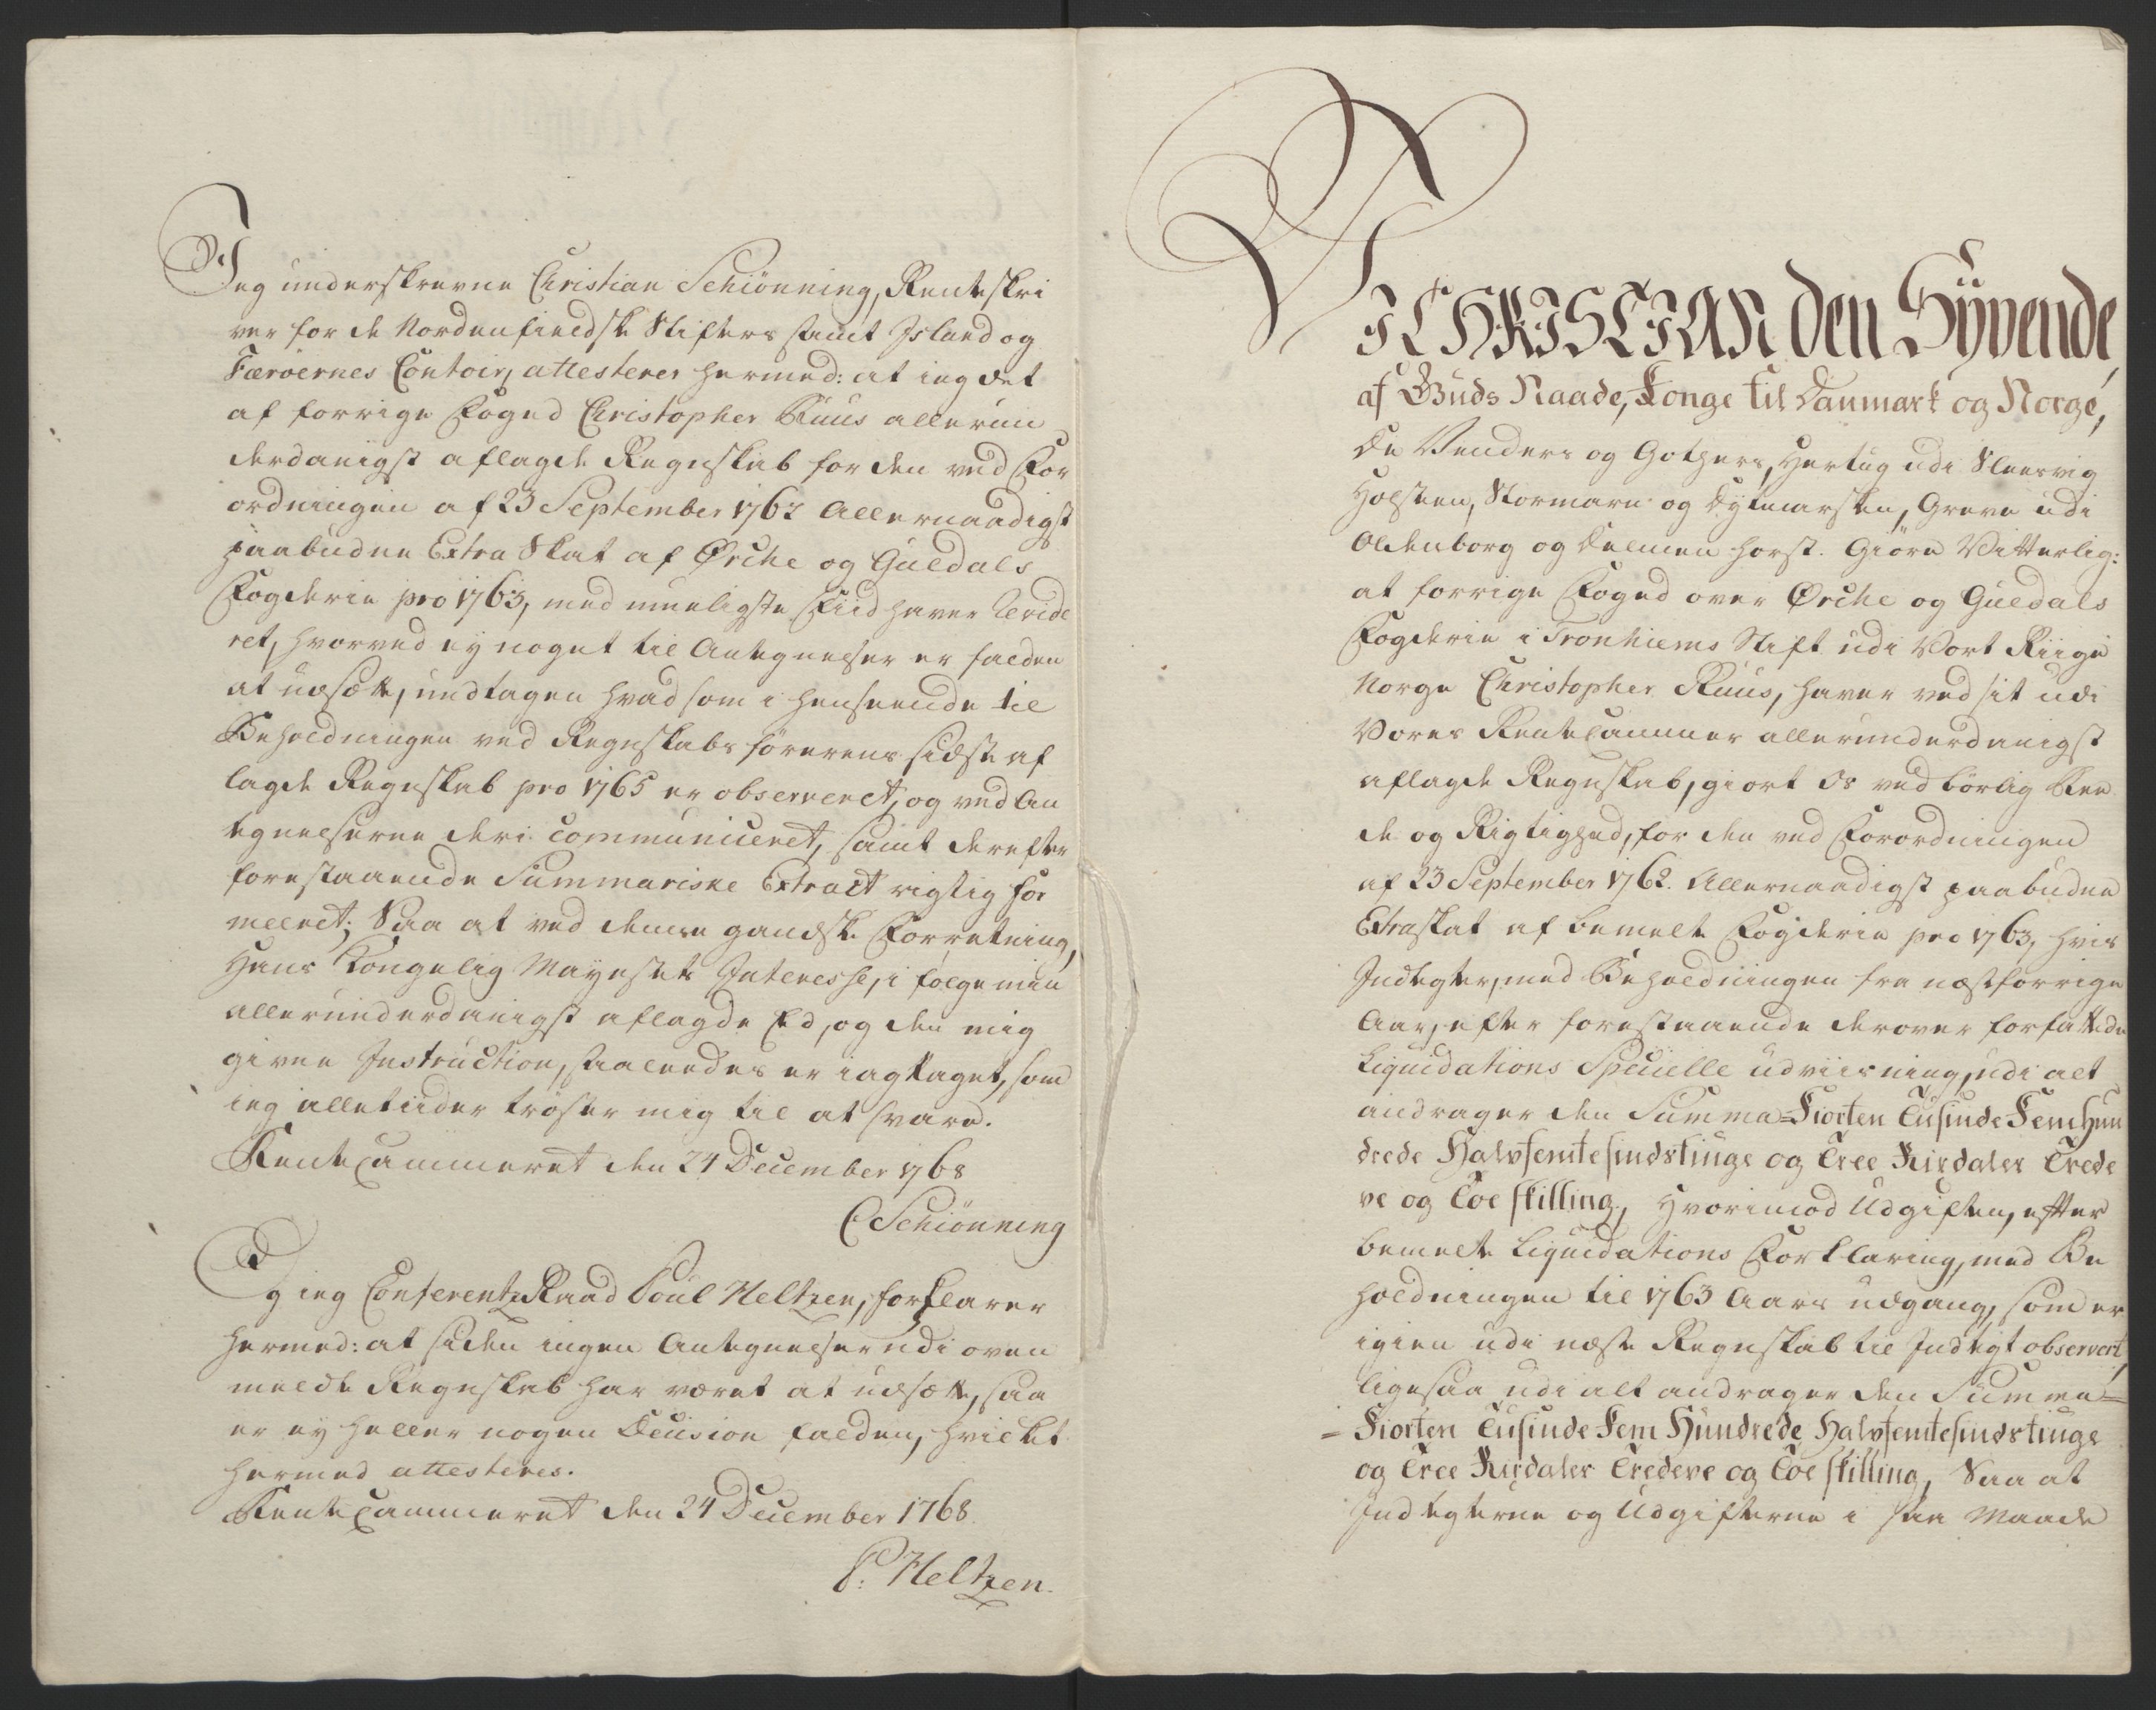 Jeg underskrevne Christian Schiönning, Renteskri
ver for de Nordenfieldske Stifters samt Jsland og
Færöernes Contoir, attesterer hermed: at ieg det
af forrige Foged Christopher Ruus allerun
derdanigst aflagde Regnskab for den ved For
ordningen af 23 September 1762 Allernaadigst
paabudne Extra Skat af Ørche og Guldals
Fogderie pro 1763, med mueligste Fliid haver Revide
ret, hvorved ey noget til Antegnelser er falden
at udsætte, undtagen hvad som i henseende til
Beholdningen ved Regnskabsförerens sidst af
lagde Regnskab pro 1765 er observeret, og ved An
tegnelserne deri communiceret, samt derefter
forestaaende Summariske Extract rigtig for
meeret; Saa at ved denne gandske Forretning,
Hans Kongelig Mayestets Interesse, i fölge min
allerunderdanigst aflagde Eed, og den mig
given Instruction, saaledes er iagttaget, som
ieg alletiider tröster mig til at svare.
RenteCammeret den 24 December 1768
C Schiönning
Og ieg ConferentzRaad Poul Heltzen, forklarer
hermed: at siden ingen Antegnelser udi oven
meldte Regnskab har været at udsætte, saa
er ey heller nogen Decision falden, hvilket
hermed attesteres.
RenteCammeret den 24 December 1768.
P: Heltzen.
VJ CHRISTIAN den Syvende,
af Guds Naade, Konge til Danmark og Norge,
De Venders og Gothers, Hertug udi Slesvig
Holsten, Stormarn og Dytmarsken, Greve udi
Oldenborg og Delmenhorst. Giöre Vitterlig:
at forrige Foged over Ørche og Guldals
Fogderie i Tronhiems Stift udi Vort Riige
Norge Christopher Ruus, haver ved sit udi
Vores RenteCammer allerunderdanigst
aflagde Regnskab, giort Os ved börlig Ree
de og Rigtighed, for den ved Forordningen
af 23 September 1762. Allernaadigst paabudne
Extraskat af bemelte Fogderie pro 1763, hvis
Indtegter, med Beholdningen fra næstforrige
Aar, efter forestaaende derover forfattede
Liquidations Specielle udviisning, udi alt
andrager den Summa = Fiorten Tusinde Fem Hun
drede Halvfemtesindstiuge og Tree Rixdaler Trede
ve og Toe skilling, Hvorimod Udgiften, efter
bemelte Liquidations Forklaring, med Be
holdningen til 1763 Aars udgang, som er
igien udi neste Regnskab til Indtegt observert,
ligesaa udi alt andrager den Summa =
= Fiorten Tusinde Fem Hundrede Halvfemtesindstiuge
og Tree Rixdaler Tredeve og Toe skilling, Saa at
Indtegterne og Udgifterne i saa Maade